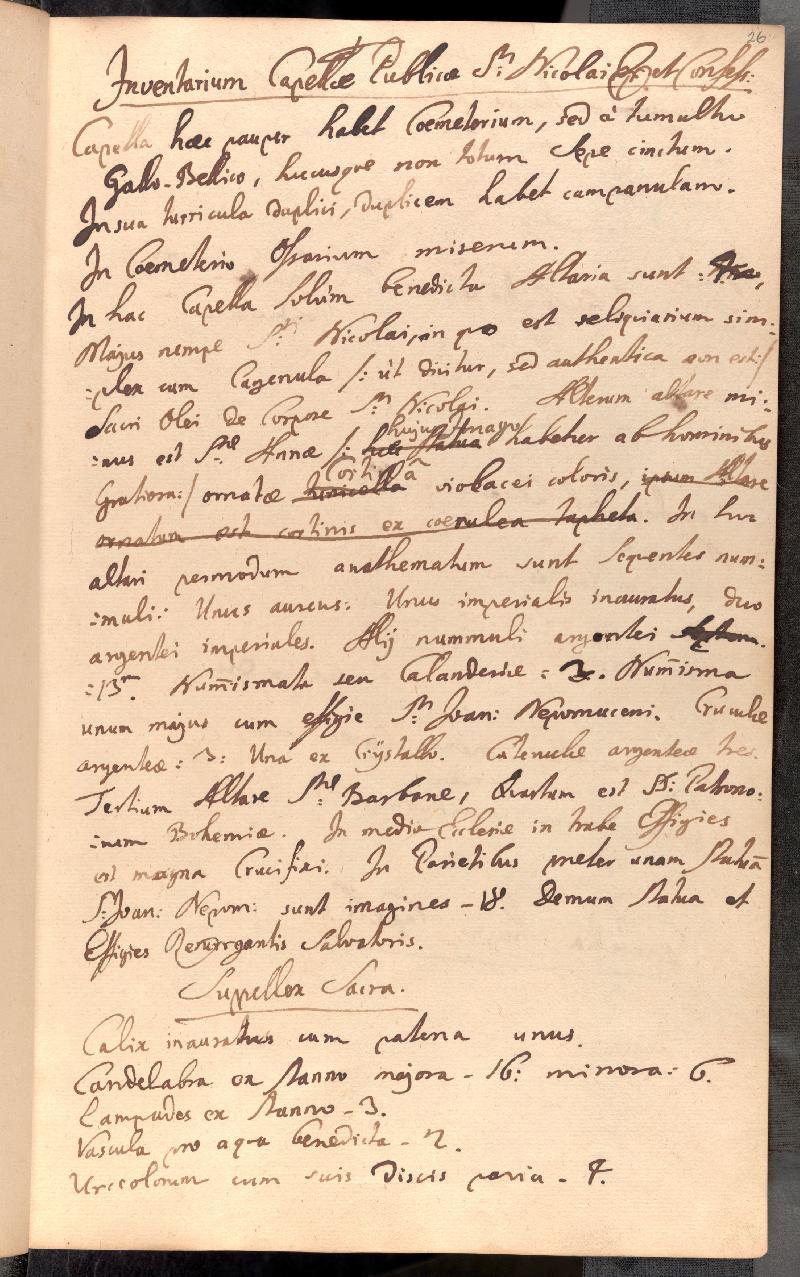 26
Inventarium Capellæ Publicæ Sti Nicolai Ep: et Confess:
Capella hæc pauper habet Coemeterium, sed à tumultu
Gallo-Bellico, hucusque non totum sepe cinctum.
In sua turricula duplici, duplicem habet campanulam.
In Coemeterio Ossarium miserum.
In hac Capella solùm benedicta Altaria sunt:
Majus nempe Sti Nicolai, in quo est reliquiarium sim:
:plex cum Capsula /: ut dicitur, sed authentica non est :/
Sacri Olei de Corpore Sti Nicolai. Alterum altare mi:
:nus est Stæ Annæ /: hujus imago habetur ab hominibus
Gratiosa :/ ornatæ Cortinâ violacei coloris, ipsum Altare
ornatum est cortinis ex coerulea tapheta. In hoc
altari per modum anathematum sunt sequentes num:
:muli: Unus aureus: Unus imperialis inauratus, duo
argentei imperiales. Alij nummuli argentei septem.
:13. Numismata seu Calanderiæ: 3. Numisma
unum majus cum effigie Sti Joan: Nepomuceni. Cruculæ
argenteæ: 3: Una ex Crÿstallo. Catenulæ argenteæ tres.
Tertium Altare Stæ Barbaræ, Quartum est SS: Patrono:
:rum Bohemiæ. In medio Ecclesiæ in trabe Effigies
est magna Crucifixi. In Parietibus præter unam Statuã
S: Joan: Nepom: sunt imagines - 18. Demum Statua et
Effigies Resurgentis Salvatoris.
Supellex Sacra.
Calix inauratus cum patena unus.
Candelabra ex Stanno majora - 16: minora: 6.
Lampades ex Stanno - 3.
Vascula pro aqua benedicta - 2.
Urceolorum cum suis Discis paria - 4.